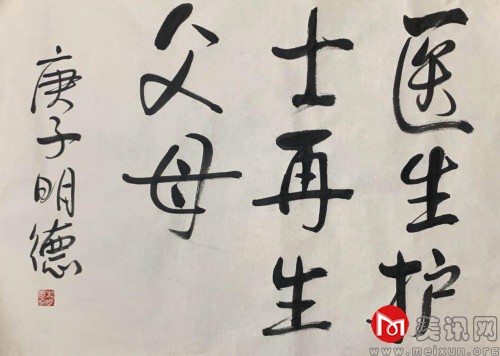 医生护
士再生
父母
庚子明德
美讯网
www.meixun.org